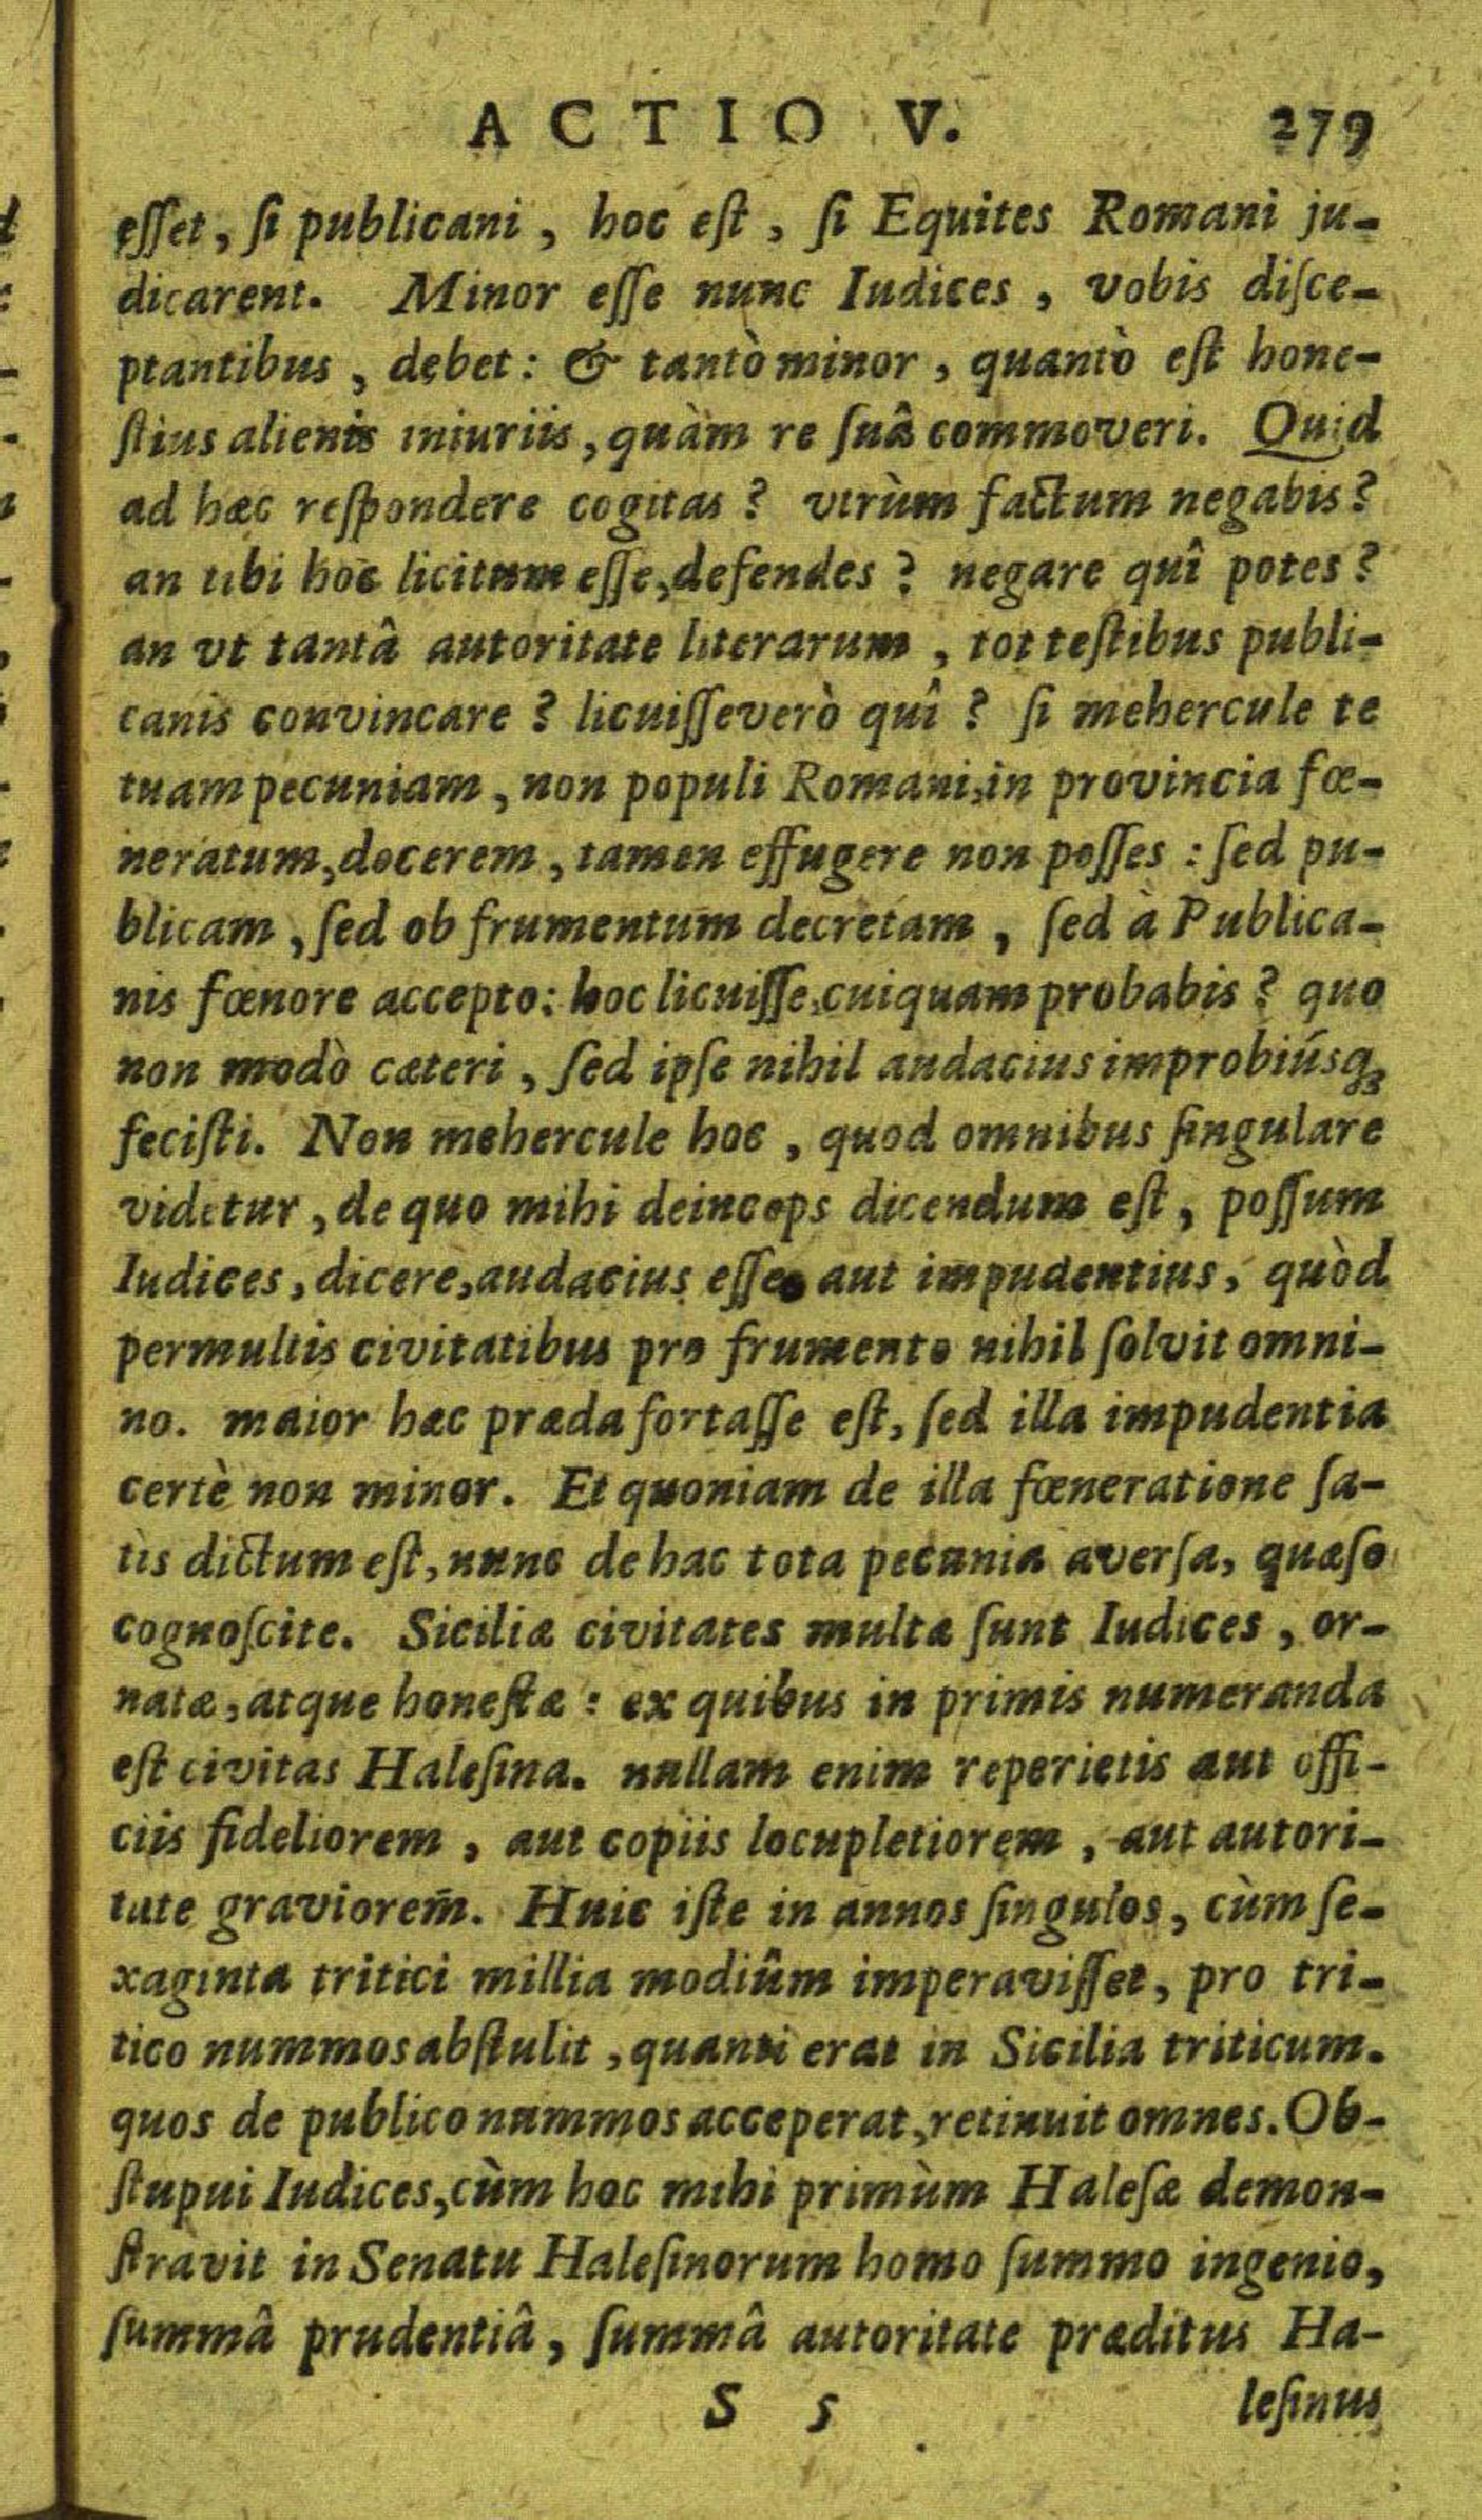 ACTIO V. 279
esset, si publicani, hoc est, si Equites Romani ju-
dicarent. Minor esse nunc Iudices, vobis disce-
ptantibus, debet: & tantò minor, quantò est hone-
stius alienis iniuriis, quàm re suâ commoveri. Quid
ad hæc respondere cogitas? vtrùm factum negabis?
an tibi hoc licitum esse, defendes? negare quî potes?
an vt tantâ autoritate literarum, tot testibus publi-
canis convincare? licuisse verò quî? si mehercule te
tuam pecuniam, non populi Romani, in provincia fœ-
neratum, docerem, tamen effugere non posses: sed pu-
blicam, sed ob frumentum decretam, sed à Publica-
nis fœnore accepto: hoc licuisse, cuiquam probabis? quo
non modò cæteri, sed ipse nihil audacius improbiúsq;
fecisti. Non mehercule hoc, quod omnibus singulare
videtur, de quo mihi deinceps dicendum est, possum
Iudices, dicere, audacius esse aut impudentius, quòd
permultis civitatibus pro frumento nihil solvit omni-
no. maior hæc præda fortasse est, sed illa impudentia
certè non minor. Et quoniam de illa fœneratione sa-
tis dictum est, nunc de hac tota pecunia aversa, quæso
cognoscite. Siciliæ civitates multæ sunt Iudices, or-
natæ, atque honestæ: ex quibus in primis numeranda
est civitas Halesina. nullam enim reperietis aut offi-
ciis fideliorem, aut copiis locupletiorem, aut autori-
tate graviorem̃. Huic iste in annos singulos, cùm se-
xaginta tritici millia modiûm imperavisset, pro tri-
tico nummos abstulit, quanti erat in Sicilia triticum.
quos de publico nummos acceperat, retinuit omnes. Ob-
stupui Iudices, cùm hoc mihi primùm Halesæ demon-
stravit in Senatu Halesinorum homo summo ingenio,
summâ prudentiâ, summâ autoritate præditus Ha-
S 5 lesinus